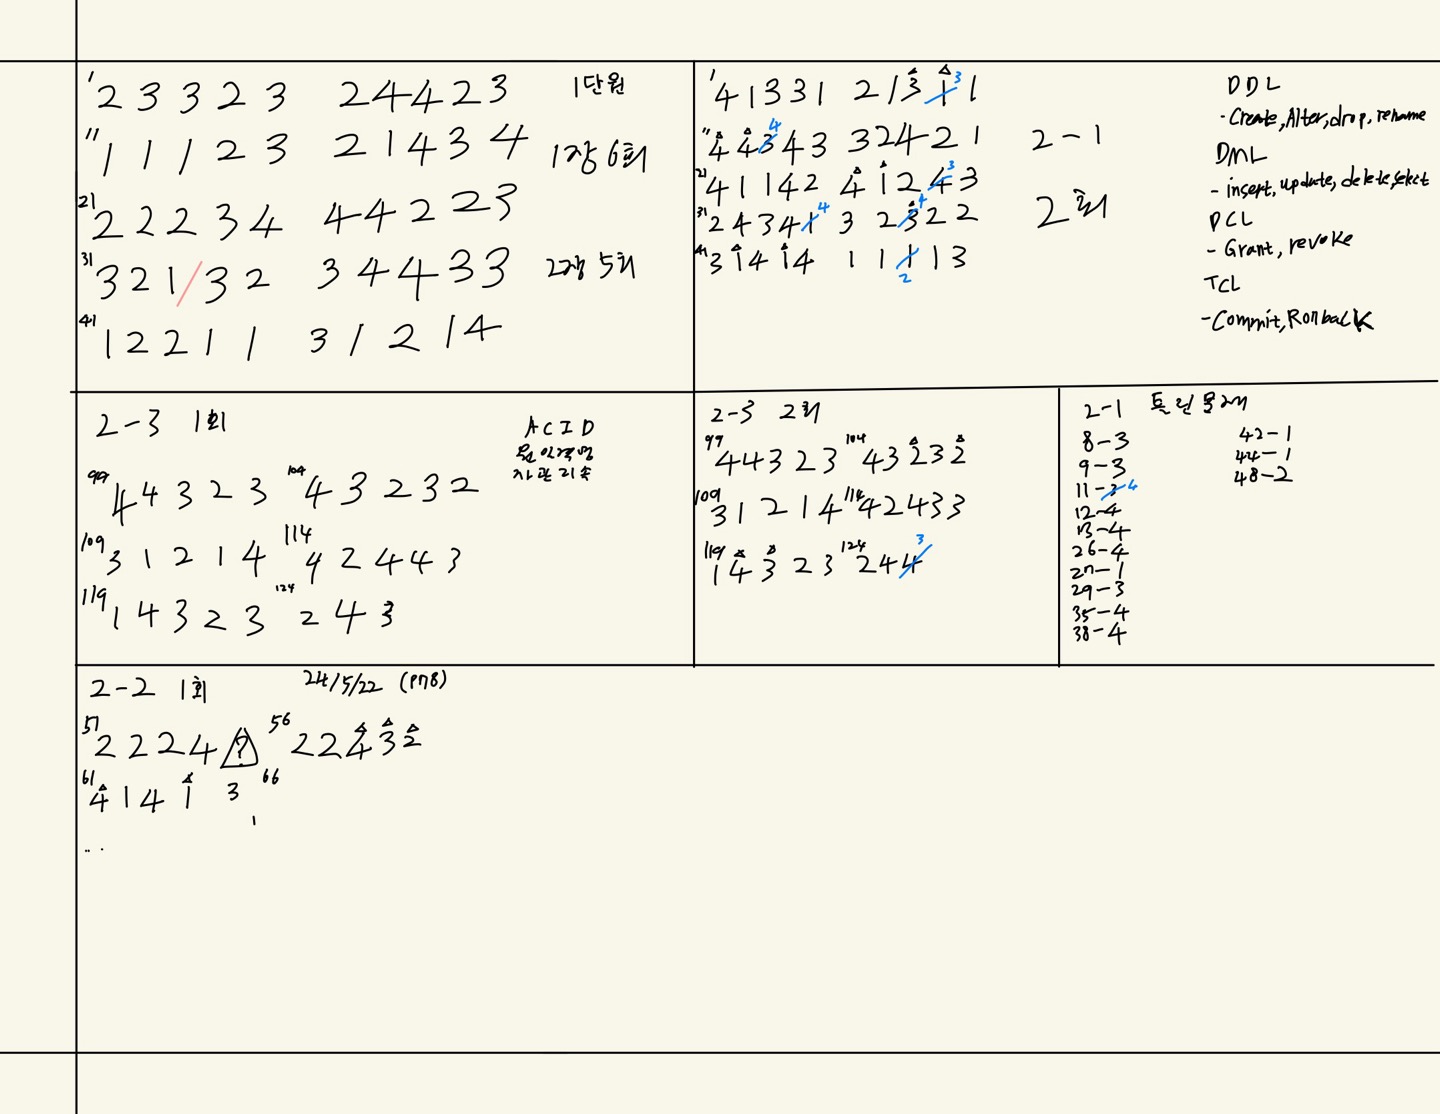 1 2 3 3 2 3 2 4 4 2 3 1단원
11 1 1 1 2 3 2 1 4 3 4 1장 6회
21 2 2 2 3 4 4 4 2 2 3
31 3 2 1 / 3 2 3 4 4 3 3 2장 5회
41 1 2 2 1 1 3 1 2 1 4
1 4 1 3 3 1 2 1 3 1 3 1
11 4 4 3 4 4 3 3 2 4 2 1 2-1
21 4 1 1 4 2 4 1 2 4 3 3
31 2 4 3 4 1 4 3 2 3 4 2 2 2회
41 3 1 4 1 4 1 1 1 2 1 3
DDL
- Create, Alter, drop, rename
DML
- insert, update, delete, select
DCL
- Grant, revoke
TCL
- Commit, Rollback
2-3 1회
ACID
원일격영
자관리속
99 4 4 3 2 3 104 4 3 2 3 2
109 3 1 2 1 4 114 4 2 4 4 3
119 1 4 3 2 3 124 2 4 3
2-3 2회
99 4 4 3 2 3 104 4 3 2 3 2
109 3 1 2 1 4 114 4 2 4 3 3
119 1 4 3 2 3 124 2 4 4 3
2-1 틀린문제
8-3
9-3
11-3 4
12-4
13-4
26-4
27-1
29-3
35-4
38-4
42-1
44-1
48-2
2-2 1회 24/5/22 (P78)
51 2 2 2 4 ? 56 2 2 4 3 2
61 4 1 4 1 3 66
1